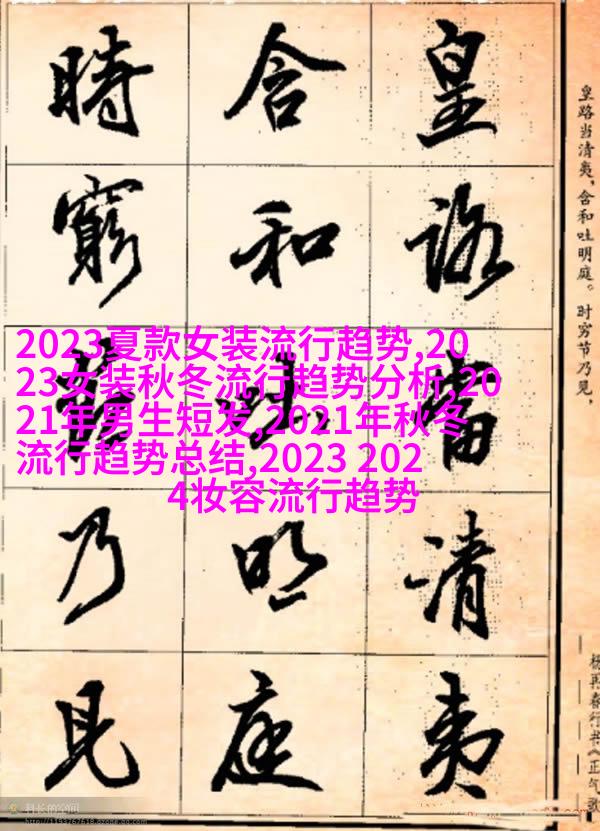 皇路当清夷,含和吐明庭。时穷节乃见,
杨再春行书《正气歌
皇路當清夷
含和吐明庭
時窮節乃見
2023夏款女装流行趋势,20
23女装秋冬流行趋势分析,20
21年男生短发,2021年秋冬
流行趋势总结,2023 202
4妆容流行趋势
科长的空间